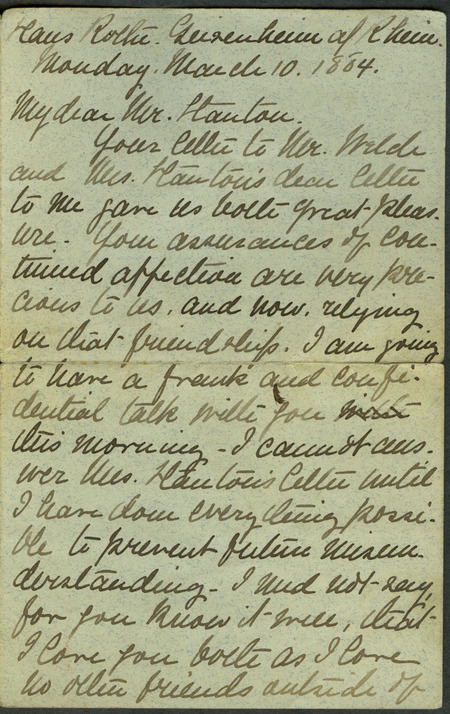 Haus Rothe. Geisenheim a/ Rhein.
Monday. March 10. 1884.
My dear Mr. Stanton.
Your letter to Mr. Welch
and Mrs. Stanton's dear letter
to me gave us both great pleas-
ure. Your assurances of con-
tinued affection are very pre-
cious to us, and now, relying
on that friendship. I am going
to have a frank and confi-
dential talk with you
this morning - I cannot ans-
wer Mrs. Stanton's letter until
I have done everything possi-
ble to prevent future misun-
derstanding - I need not say,
for you know it well, that
I love you both as I love
no other friends outside of